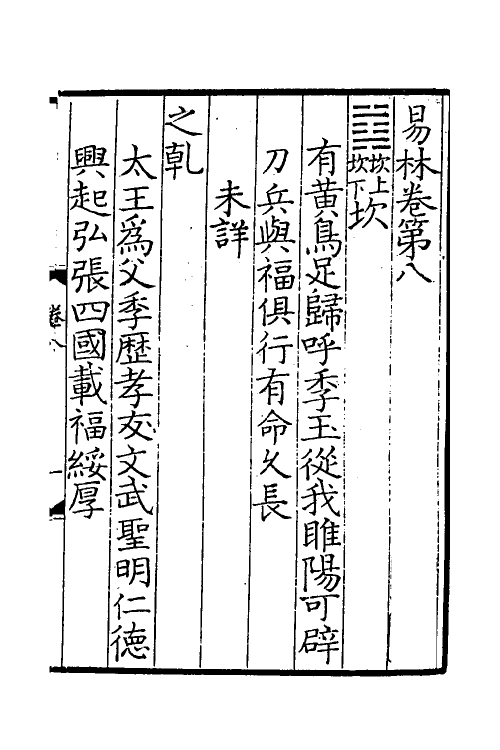 易林卷第八
䷜坎上坎下坎
有黄鳥足歸呼季玉從我睢陽可辟
刀兵與福俱行有命久長
未詳
之乹
太王爲父季歷孝友文武聖明仁徳
興起弘張四國載福綏厚
卷八
一